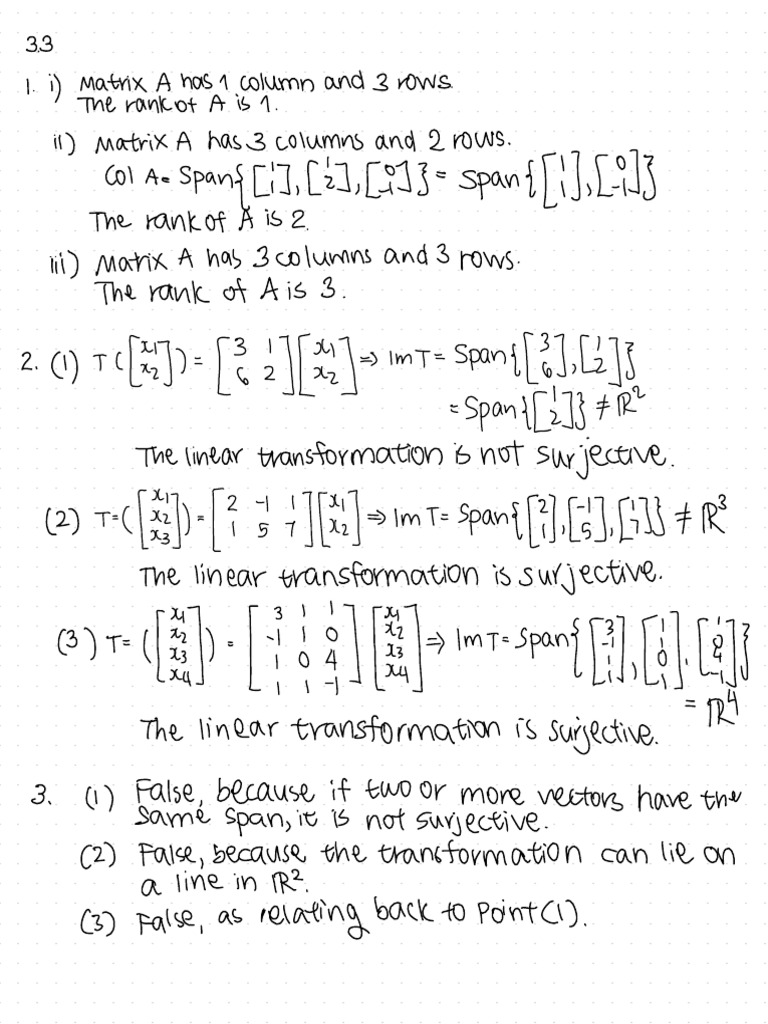 3.3
1. i) Matrix A has 1 column and 3 rows.
The rank of A is 1.
ii) Matrix A has 3 columns and 2 rows.
Col A = Span{[1 1], [1 2], [0 -1]} = Span{[1 1], [0 -1]}
The rank of A is 2.
iii) Matrix A has 3 columns and 3 rows.
The rank of A is 3.
2. (1) T([x1 x2]) = [3 1; 6 2][x1 x2] ⇒ Im T = Span{[3 6], [1 2]}
= Span{[1 2]} ≠ ℝ²
The linear transformation is not surjective.
(2) T=([x1 x2 x3]) = [2 -1 1; 1 5 7][x1 x2] ⇒ Im T = Span{[2 1], [-1 5], [1 7]} ≠ ℝ³
The linear transformation is surjective.
(3) T=([x1 x2 x3 x4]) = [3 1 1; -1 1 0; 1 0 4; 1 1 -1][x1 x2 x3 x4] ⇒ Im T = Span{[3 -1 1 1], [1 1 0 1], [1 0 4 -1]}
= ℝ⁴
The linear transformation is surjective.
3. (1) False, because if two or more vectors have the
same span, it is not surjective.
(2) False, because the transformation can lie on
a line in ℝ².
(3) False, as relating back to Point (1).